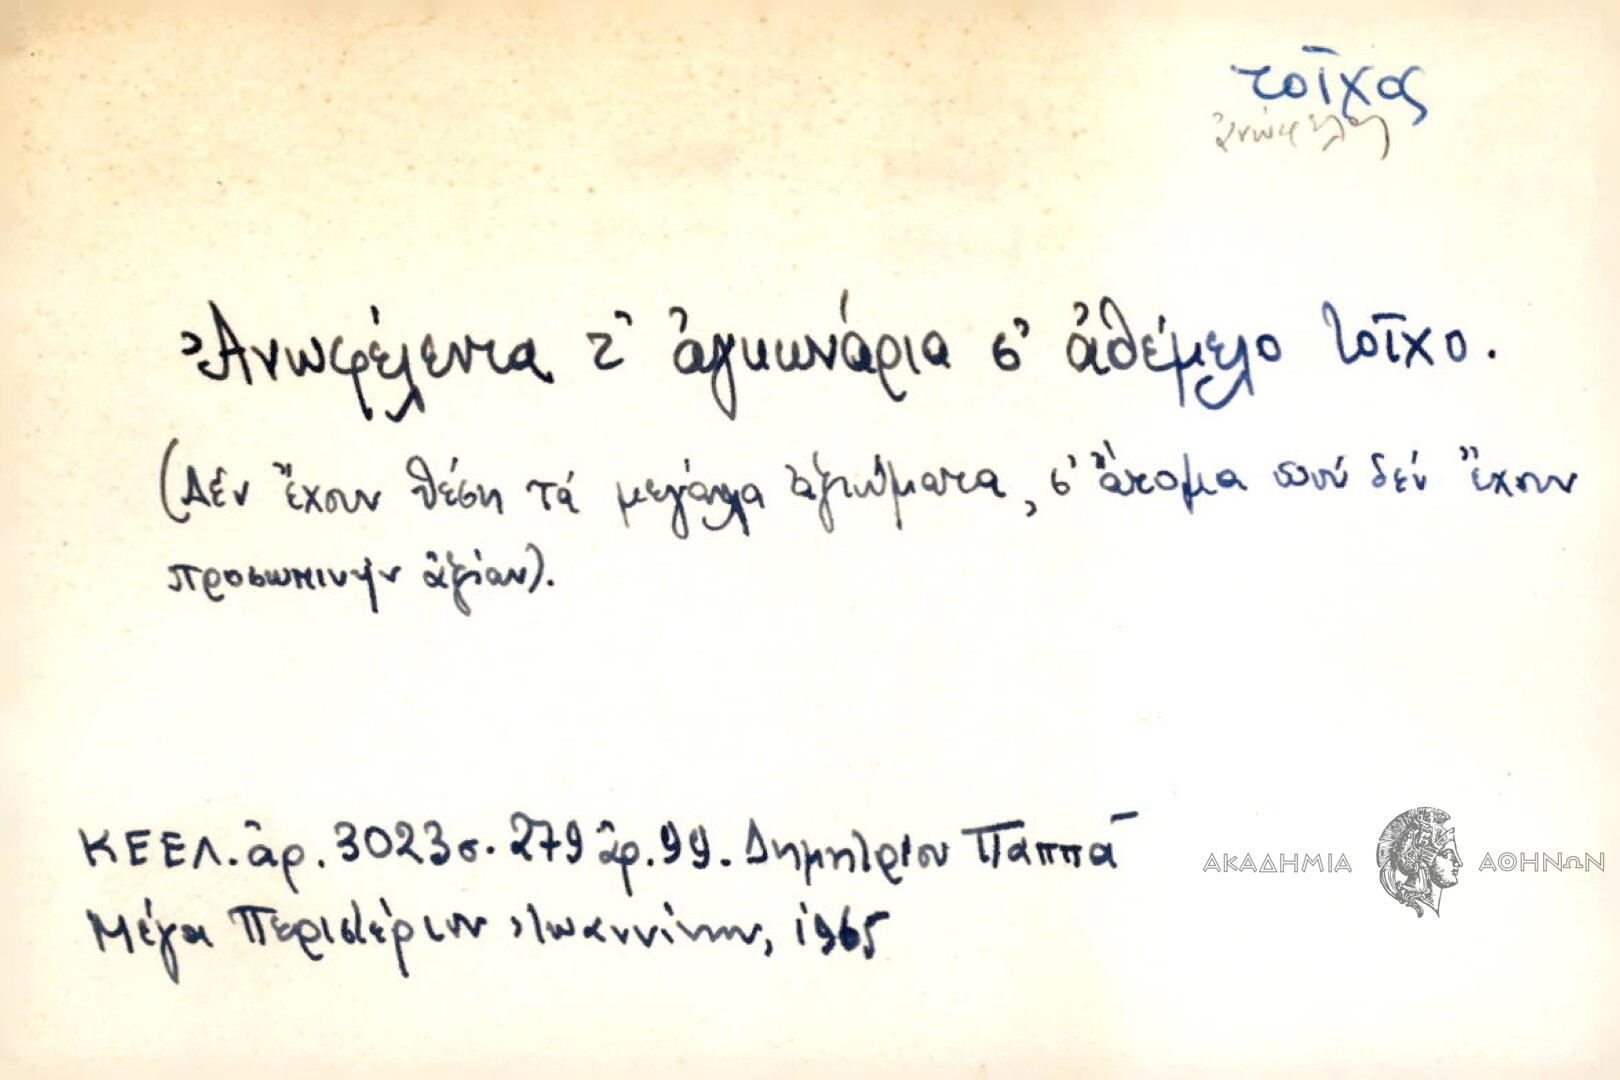 τοῖχος
ἀνώφελος
Ἀνωφέλεντα τ' ἀγκωνάρια σ' ἀθέμελο τοῖχο.
(Δέν ἔχουν θέση τά μεγάλα ἀξιώματα, σ' ἄτομα πού δέν ἔχουν
προσωπικήν ἀξίαν).
ΚΕΕΛ. ἀρ. 3023 σ. 279 ἀρ. 99. Δημητρίου Παππᾶ
Μέγα Περιστέριον Ἰωαννίνων, 1965
ΑΚΑΔΗΜΙΑ ΑΘΗΝΩΝ